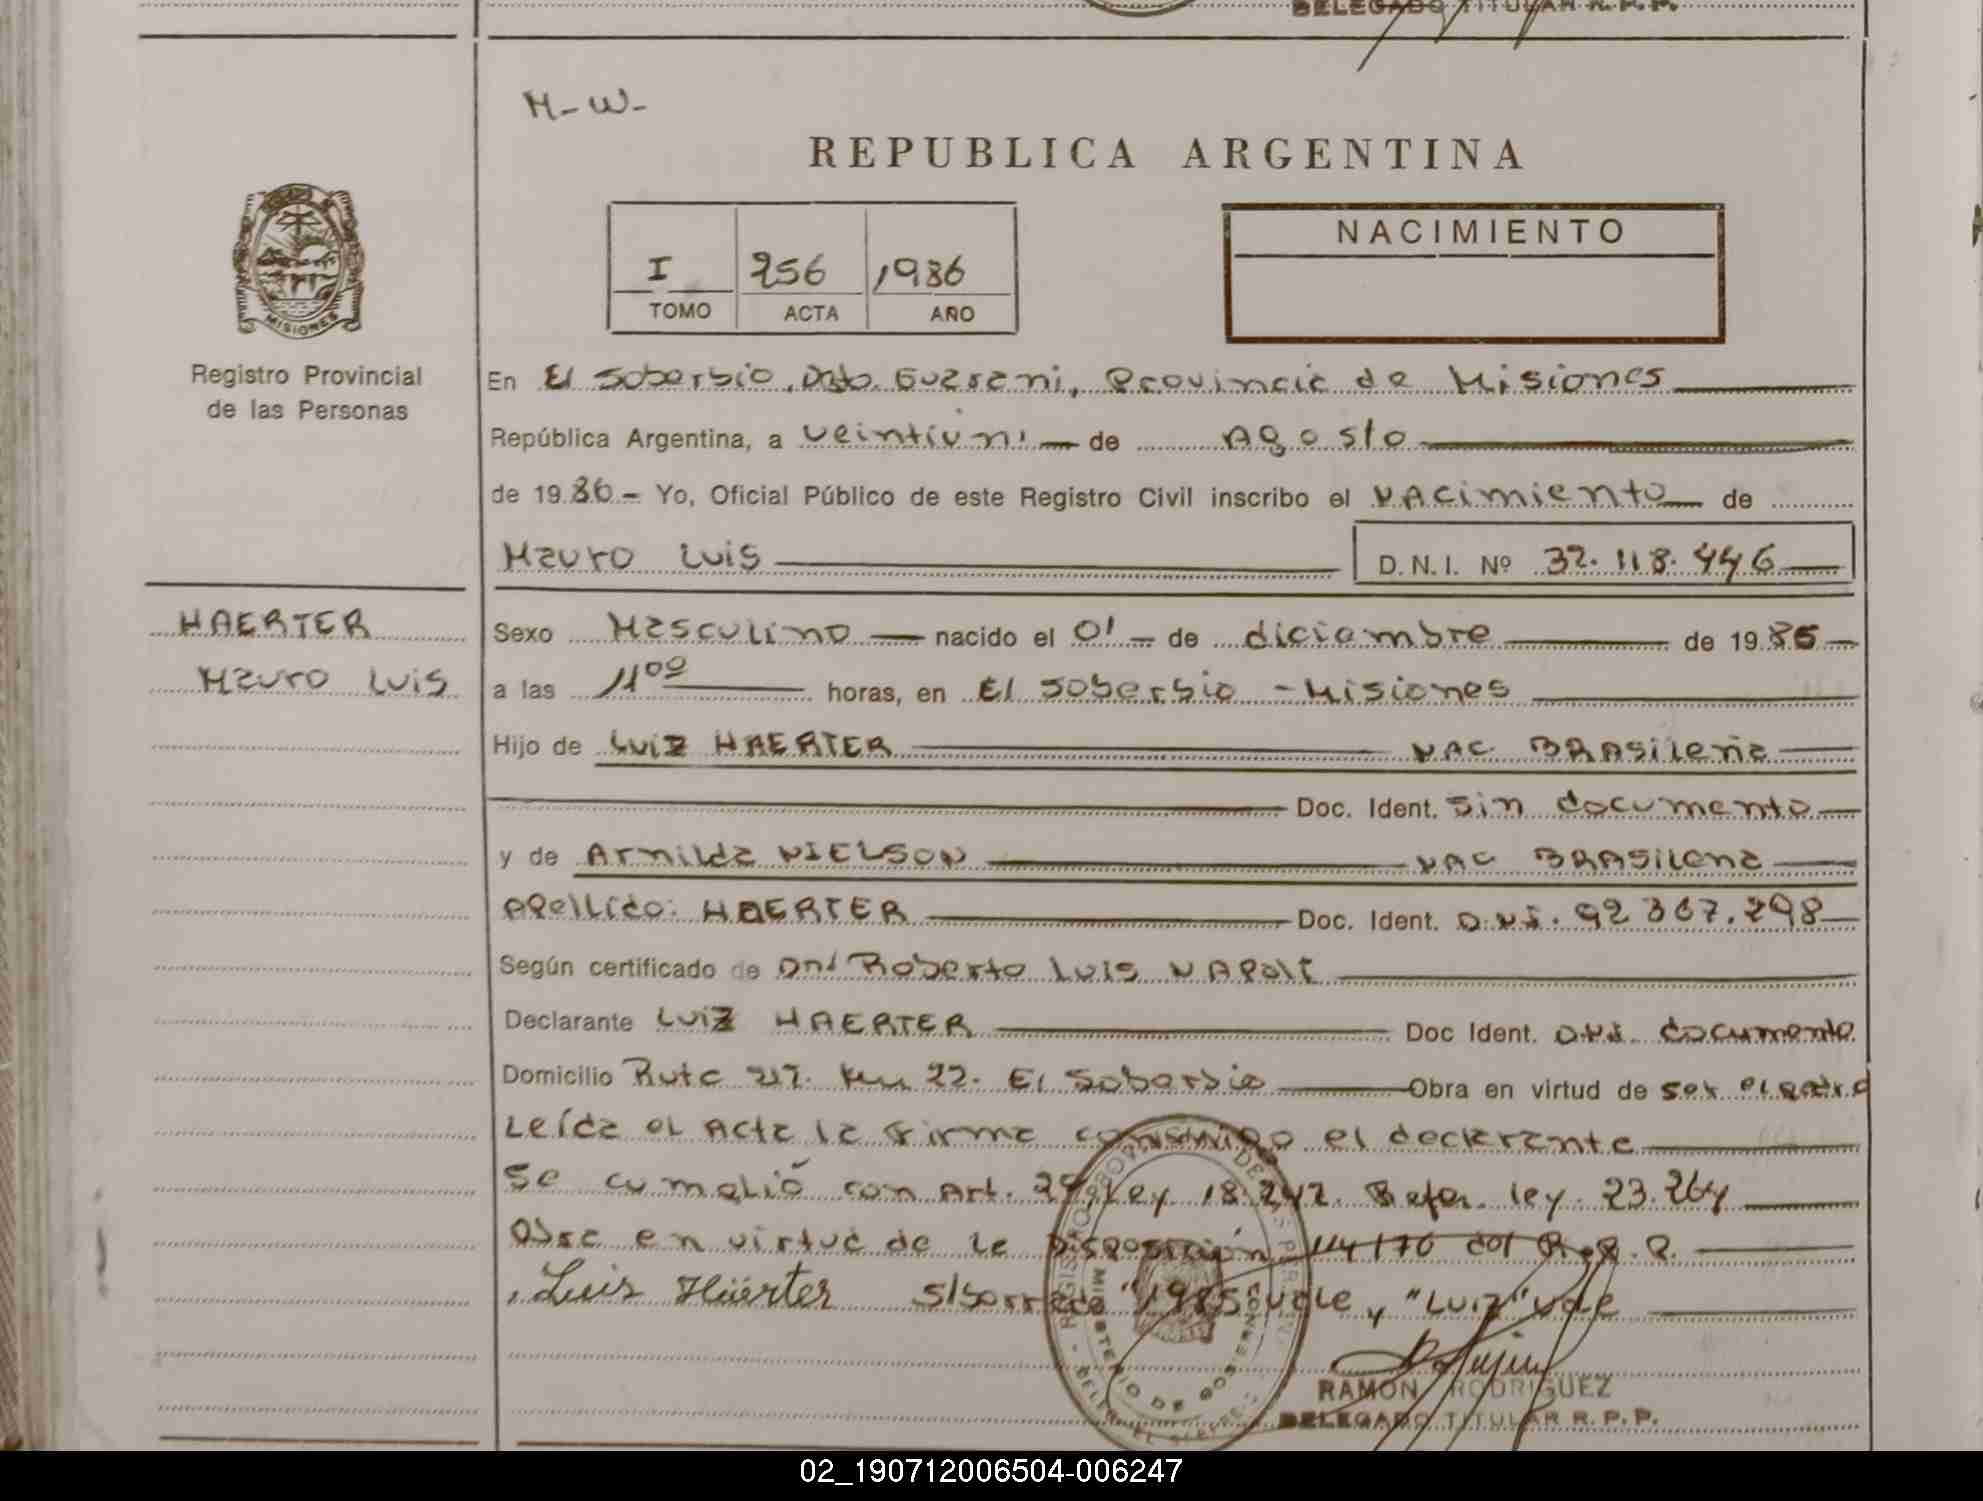 DELEGADO TITULAR R.P.P.
M-W-
REPUBLICA ARGENTINA
I 256 1986
TOMO ACTA AÑO
NACIMIENTO
MISIONES
Registro Provincial
de las Personas
En El Soberbio, Dpto. Guarani, Provincia de Misiones
República Argentina, a veintiun de Agosto
de 1986.- Yo, Oficial Público de este Registro Civil inscribo el NAcimiento de
Mauro Luis D.N.I. Nº 32.118.446
HAERTER
Mauro Luis
Sexo Masculino nacido el 01 de diciembre de 1985
a las 11 00 horas, en El Soberbio - Misiones
Hijo de Luiz HAERTER NAC. BRASileña
Doc. Ident. Sin documento
y de Arnilda NIELSON NAC BRASilena
Apellido: HAERTER Doc. Ident. D.N.I. 92 367.298
Según certificado de Roberto Luis NApoli
Declarante Luiz HAERTER Doc Ident. documento
Domicilio Ruta Km 22. El Soberbio Obra en virtud de ser el padre
Leída el Acta la firma conmigo el declarante
Se cumplió con Art. 29, Ley 18.242. Refer. ley. 23.264
Obra en virtud de la Disposición 114/76 del R.P.P.
Luis Häerter S/borrado "1985" vale y "Luiz" vale
RAMON RODRIGUEZ
DELEGADO TITULAR R.P.P.
MINISTERIO DE GOBIERNO
02_190712006504-006247